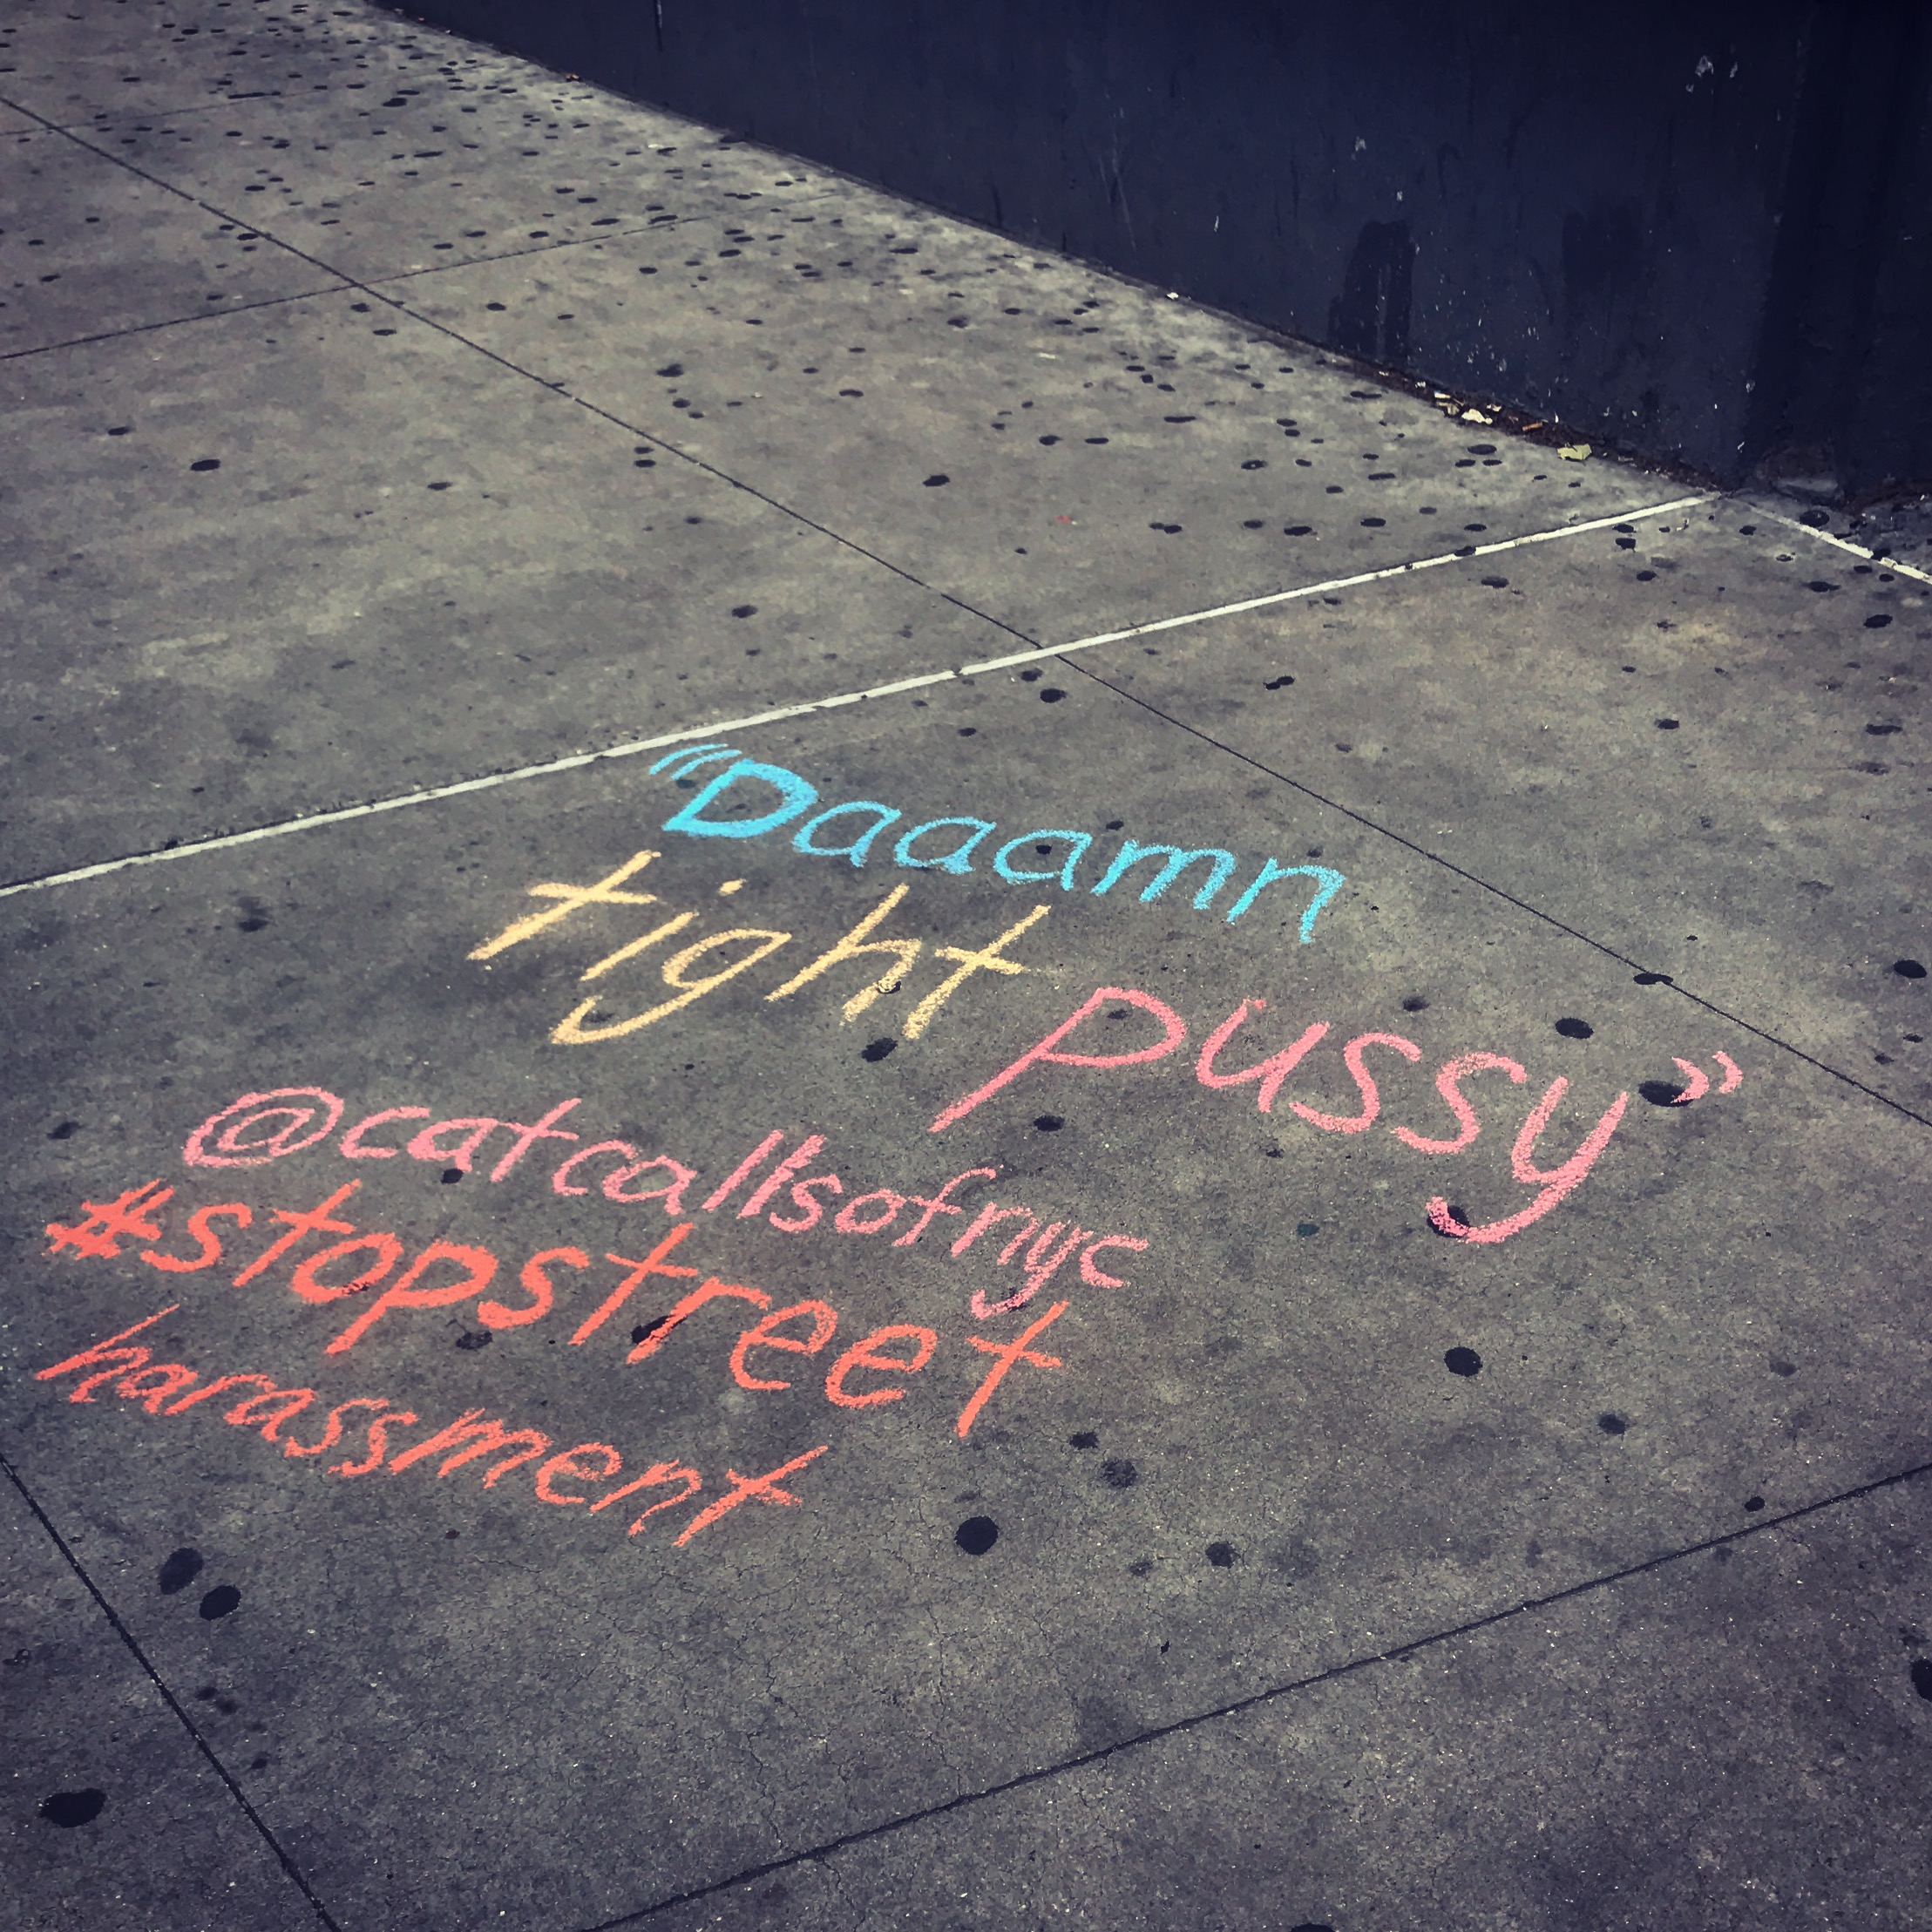 "Daaamn
tight pussy"
@catcallsofnyc
#stopstreet
harassment